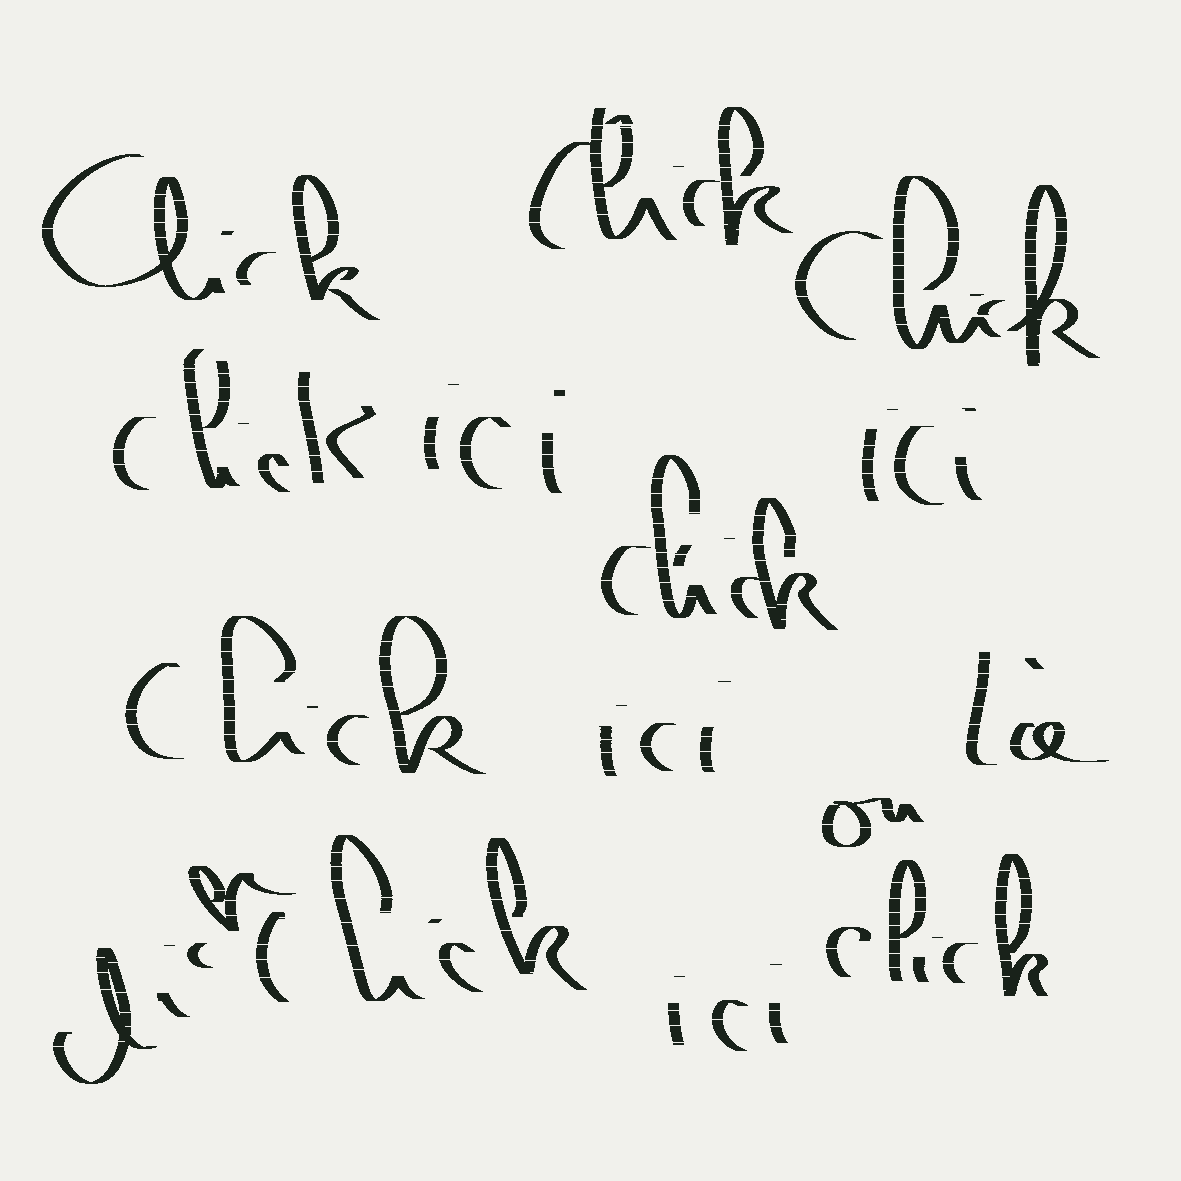 Click click Click
click ici ici
click
Click ici là
ou
click Click click
ici